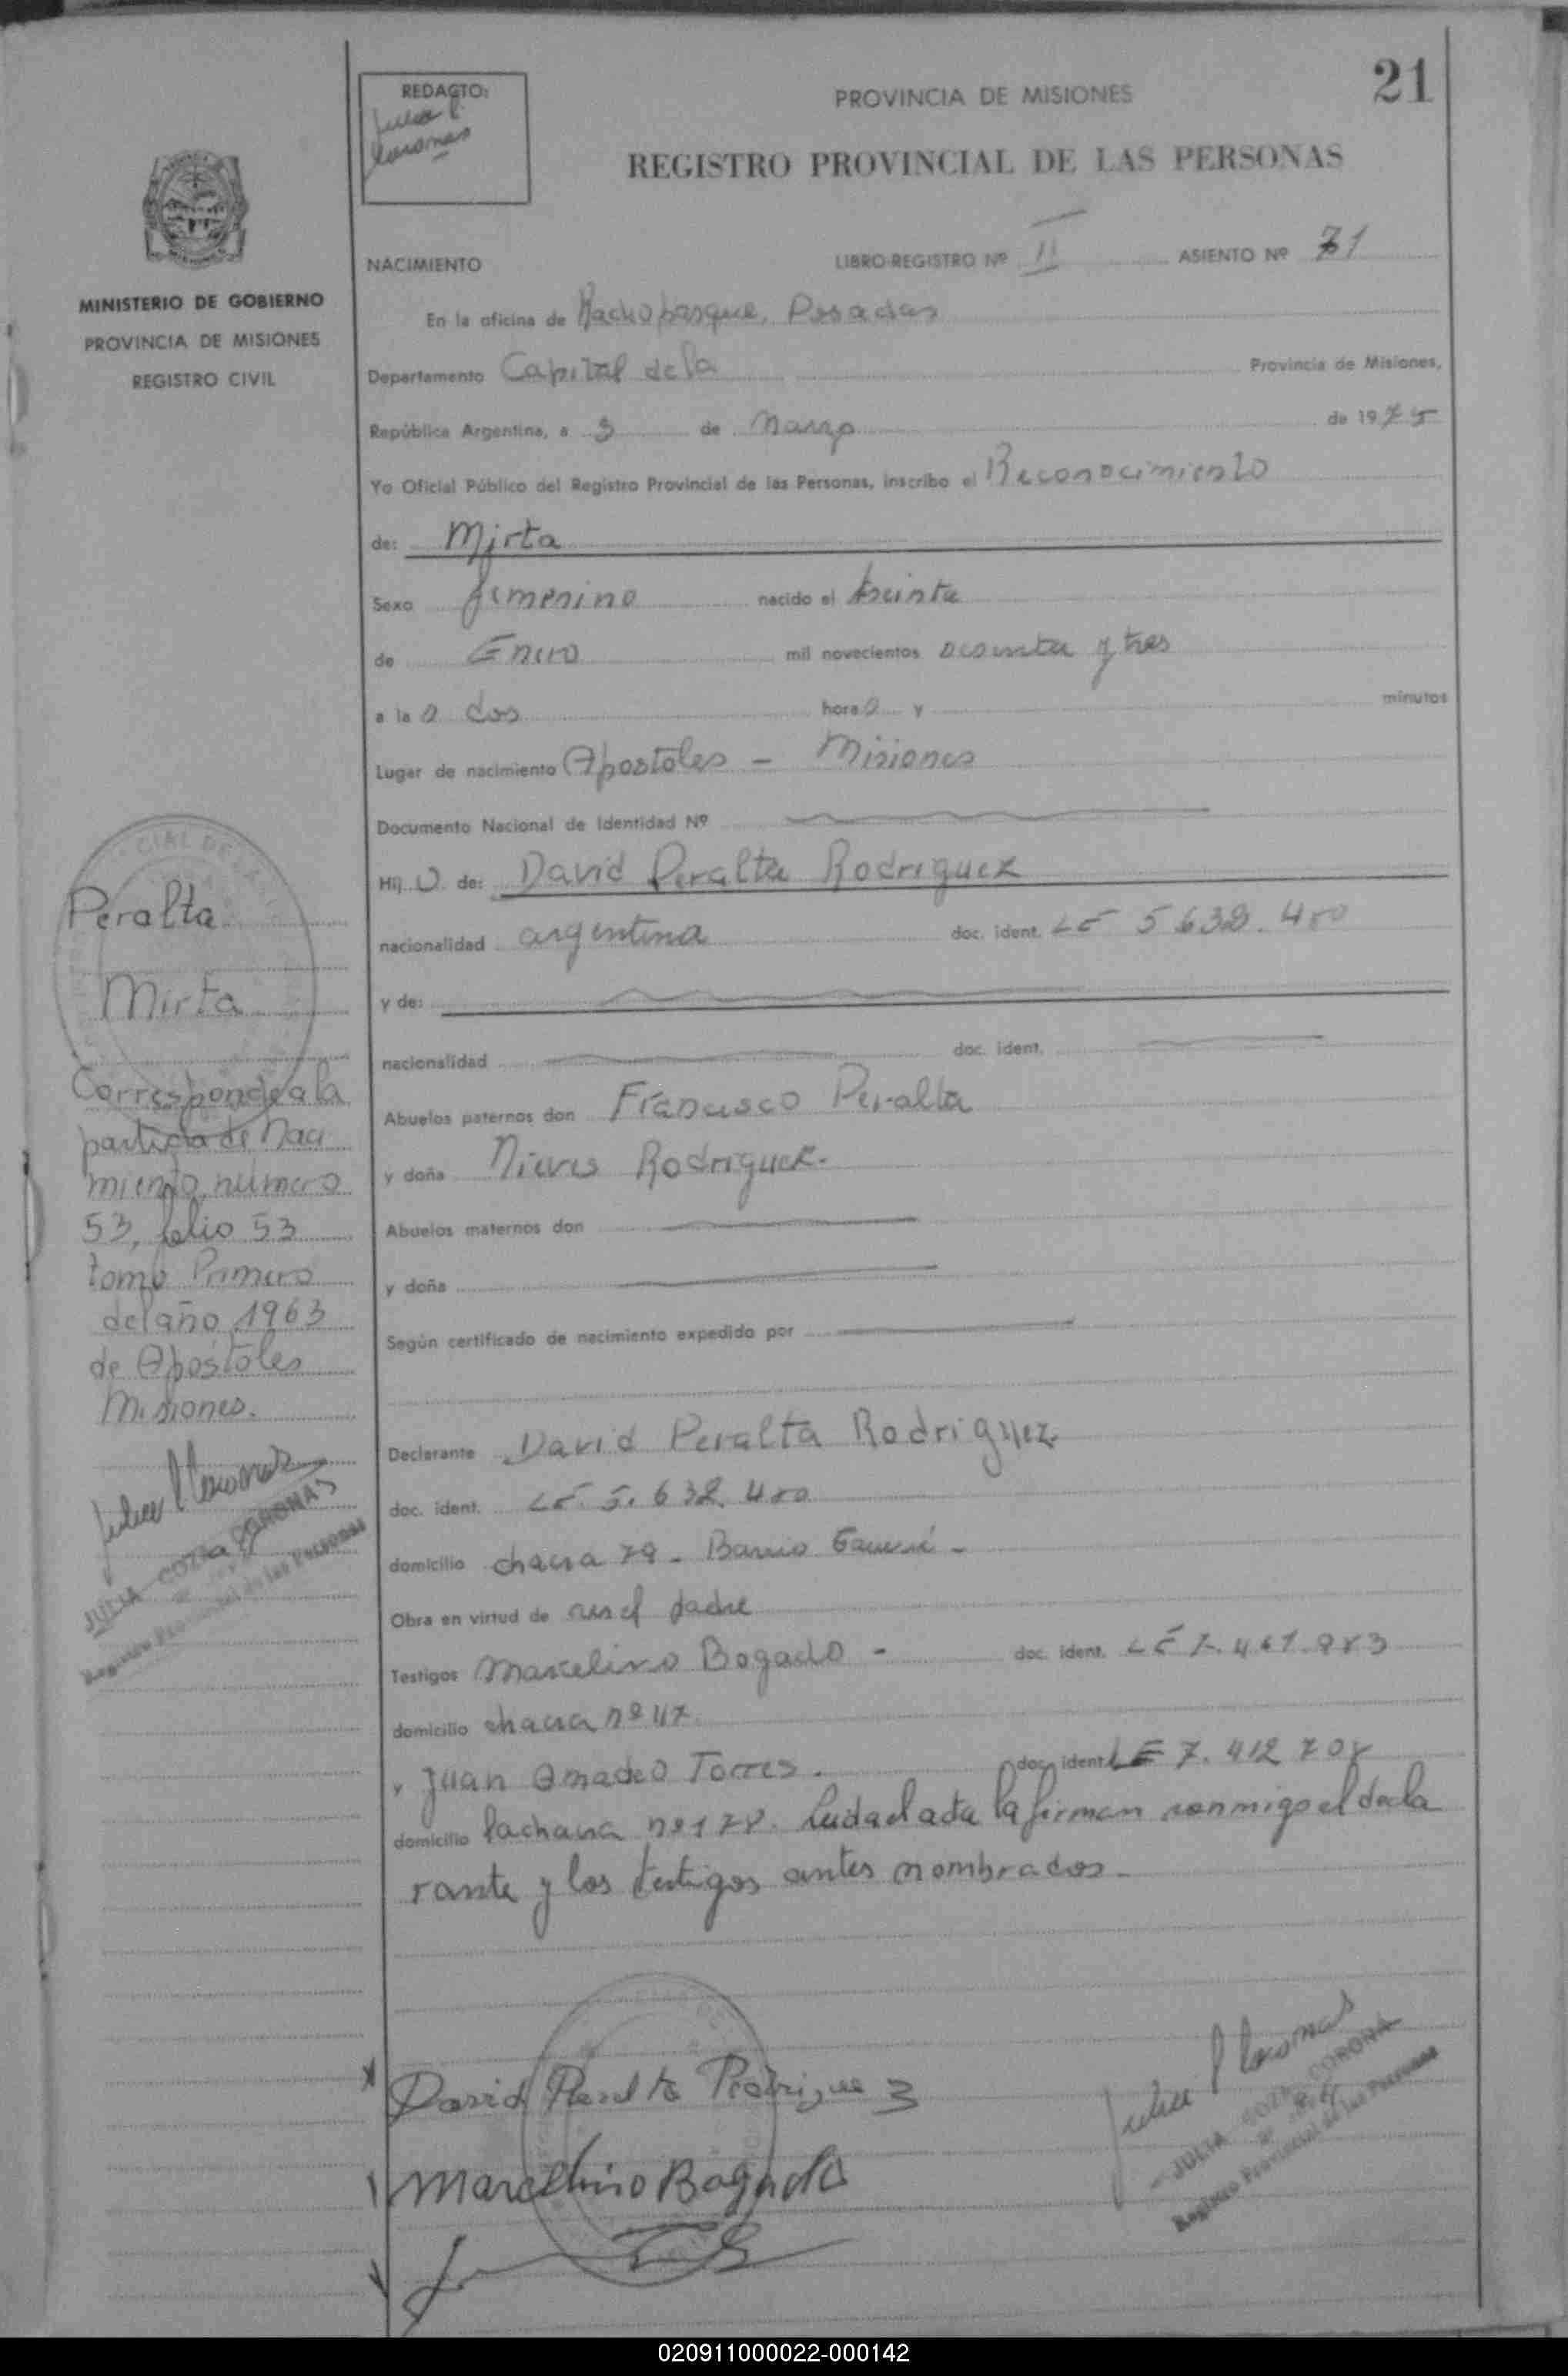 21
REDACTO:
Julia C.
Coronas
PROVINCIA DE MISIONES
REGISTRO PROVINCIAL DE LAS PERSONAS
MINISTERIO DE GOBIERNO
PROVINCIA DE MISIONES
REGISTRO CIVIL
NACIMIENTO LIBRO-REGISTRO Nº II ASIENTO Nº 71
En la oficina de Posadas
Departamento Capital de la Provincia de Misiones,
República Argentina, a 3 de Marzo de 1975
Yo Oficial Público del Registro Provincial de las Personas, inscribo el Reconocimiento
de: Mirta
Sexo femenino nacido el treinta
de Enero mil novecientos sesenta y tres
a las dos horas y minutos
Lugar de nacimiento Apostoles - Misiones
Documento Nacional de Identidad Nº
Hij de: David Peralta Rodriguez
nacionalidad argentina doc. ident. LE 5.638.400
y de:
nacionalidad doc. ident.
Abuelos paternos don Francisco Peralta
y doña Nieves Rodriguez.
Abuelos maternos don
y doña
Según certificado de nacimiento expedido por
Declarante David Peralta Rodriguez
doc. ident. LE. 5.638.400
domicilio chacra 79 - Barrio
Obra en virtud de ser el padre
Testigos Marcelino Bogado - doc. ident. LE 7.461.983
domicilio chacra nº 47.
y Juan Amadeo Torres. doc. ident. LE 7.412.708
domicilio la chacra nº 178. Leida el acta la firman conmigo el decla
rante y los testigos antes nombrados.
Peralta
Mirta
Corresponde a la
partida de Naci
miento, número
53, folio 53
tomo Primero
del año 1963
de Apóstoles
Misiones.
Julia C Coronas
JULIA COZA CORONAS
Registro Provincial de las Personas
David Peralta Rodriguez
Marcelino Bogado
Julia C Coronas
JULIA COZA CORONA
Registro Provincial de las Personas
020911000022-000142